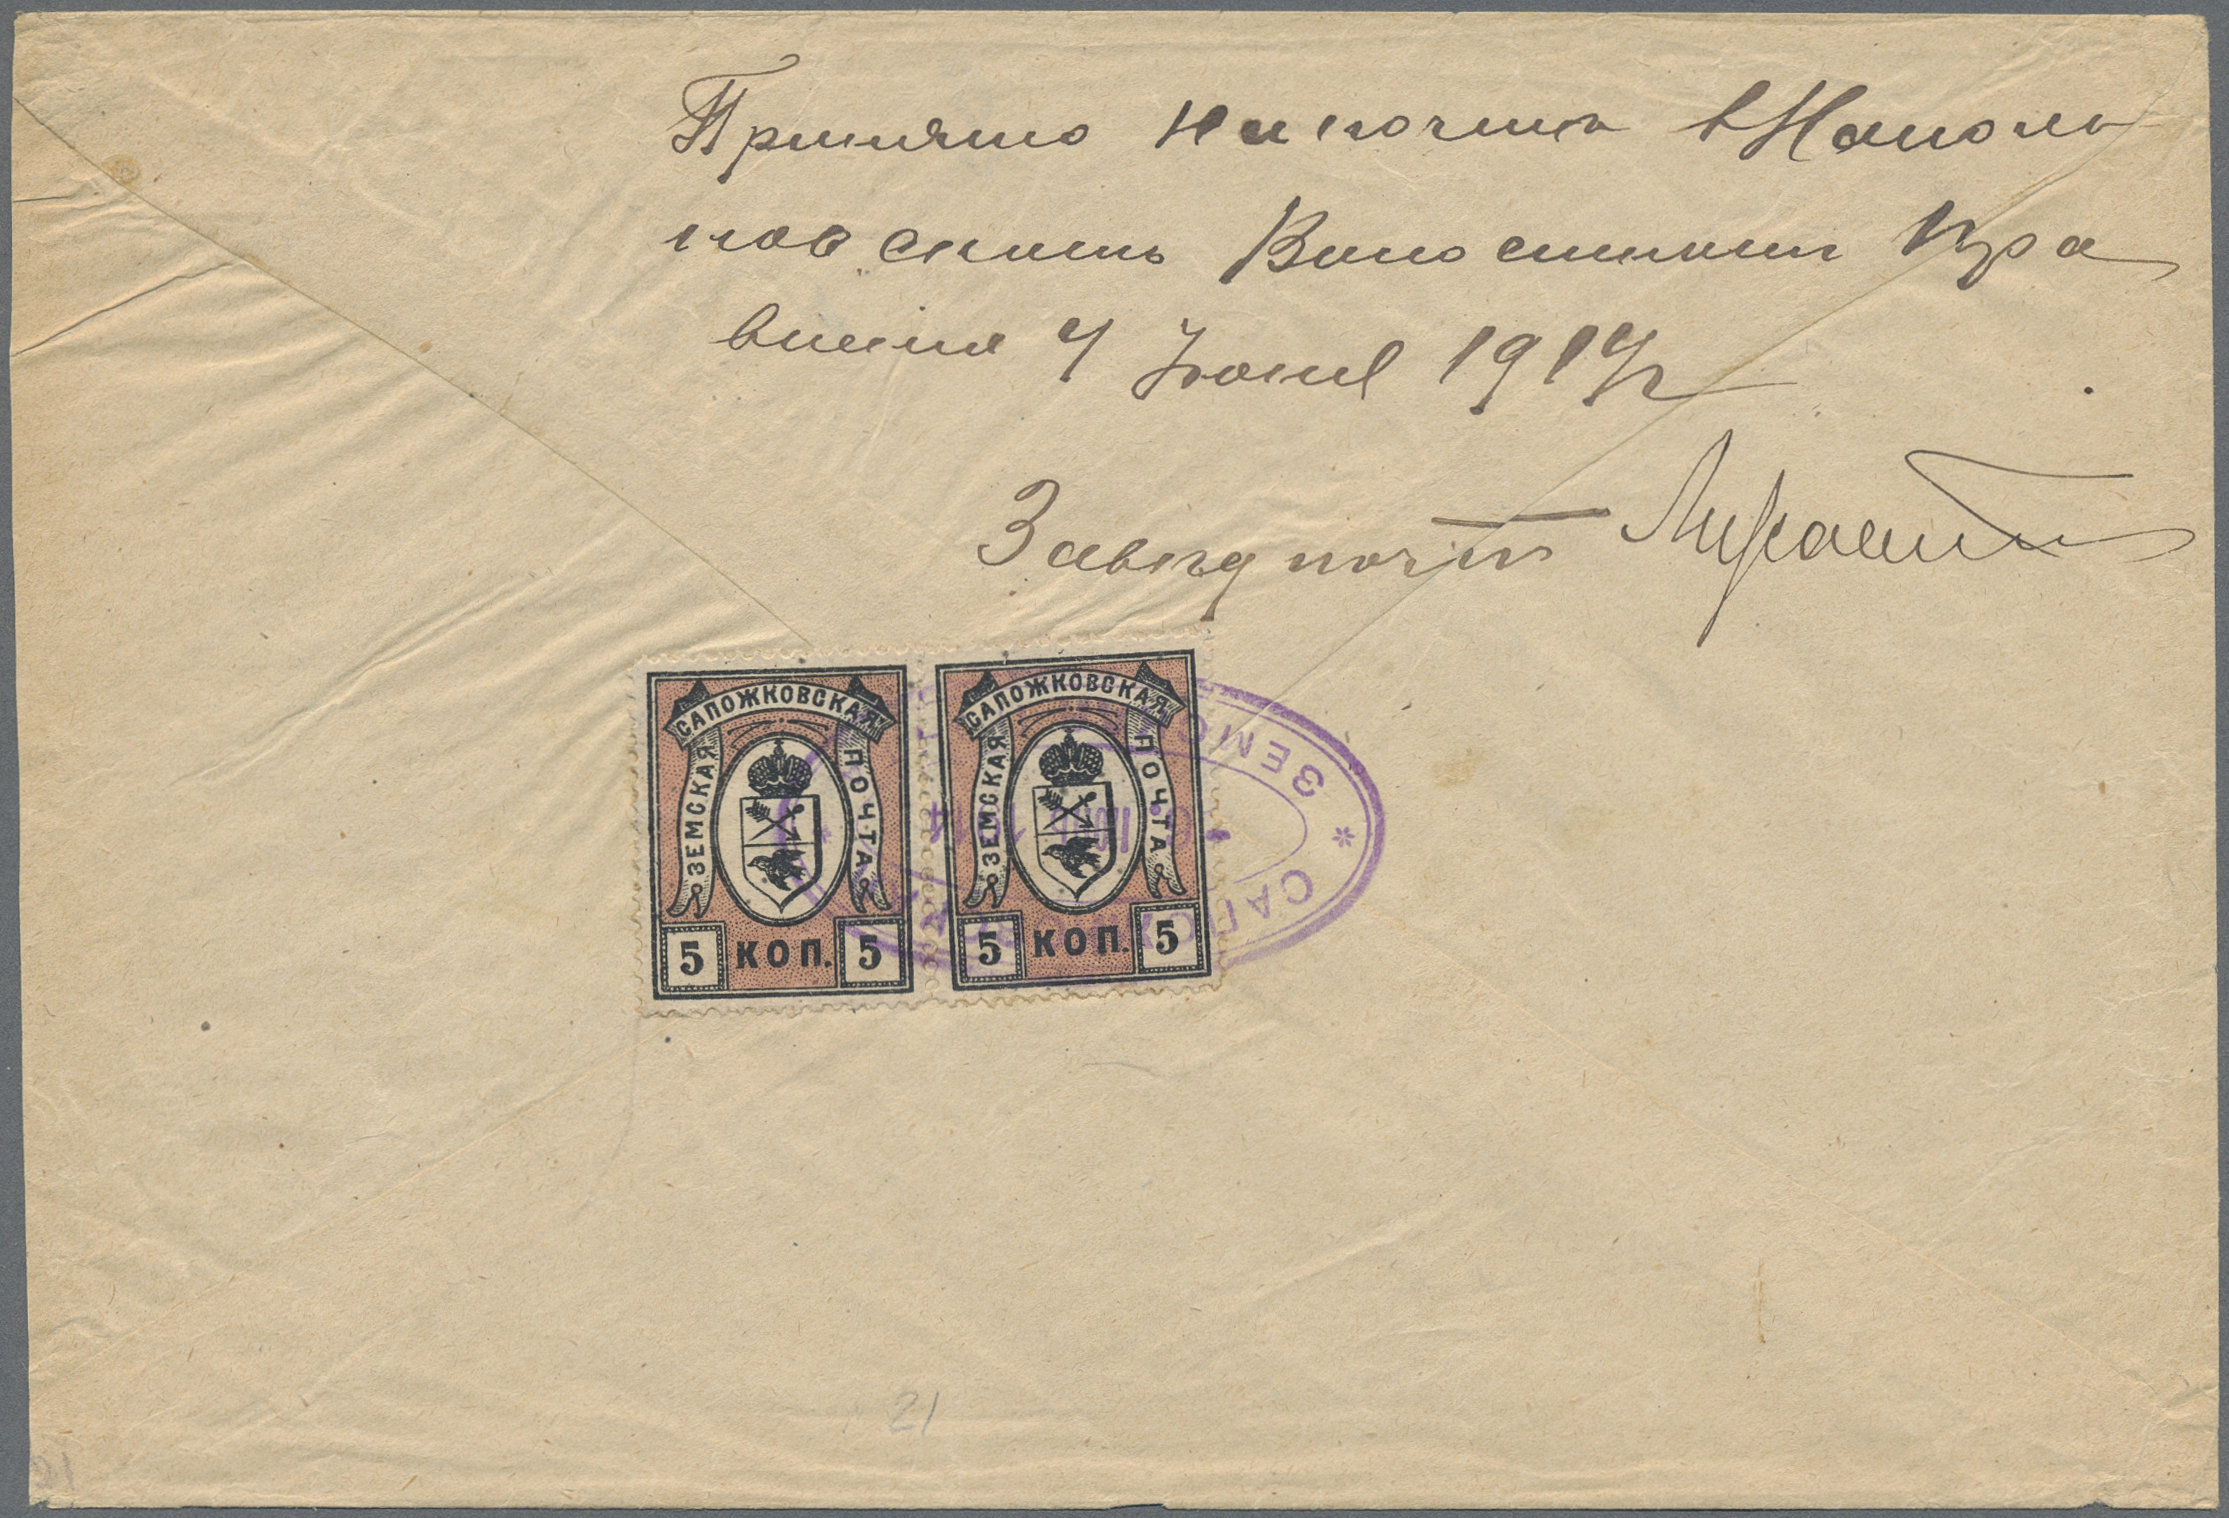 Принято на почту в Наполь
новскомъ Волостномъ Пра
вленіи 4 Іюня 1914 г
Завѣд почт
САПОЖКОВСКАЯ
ЗЕМСКАЯ ПОЧТА
5 КОП. 5
САПОЖКОВСКАЯ
ЗЕМСКАЯ ПОЧТА
5 КОП. 5
21